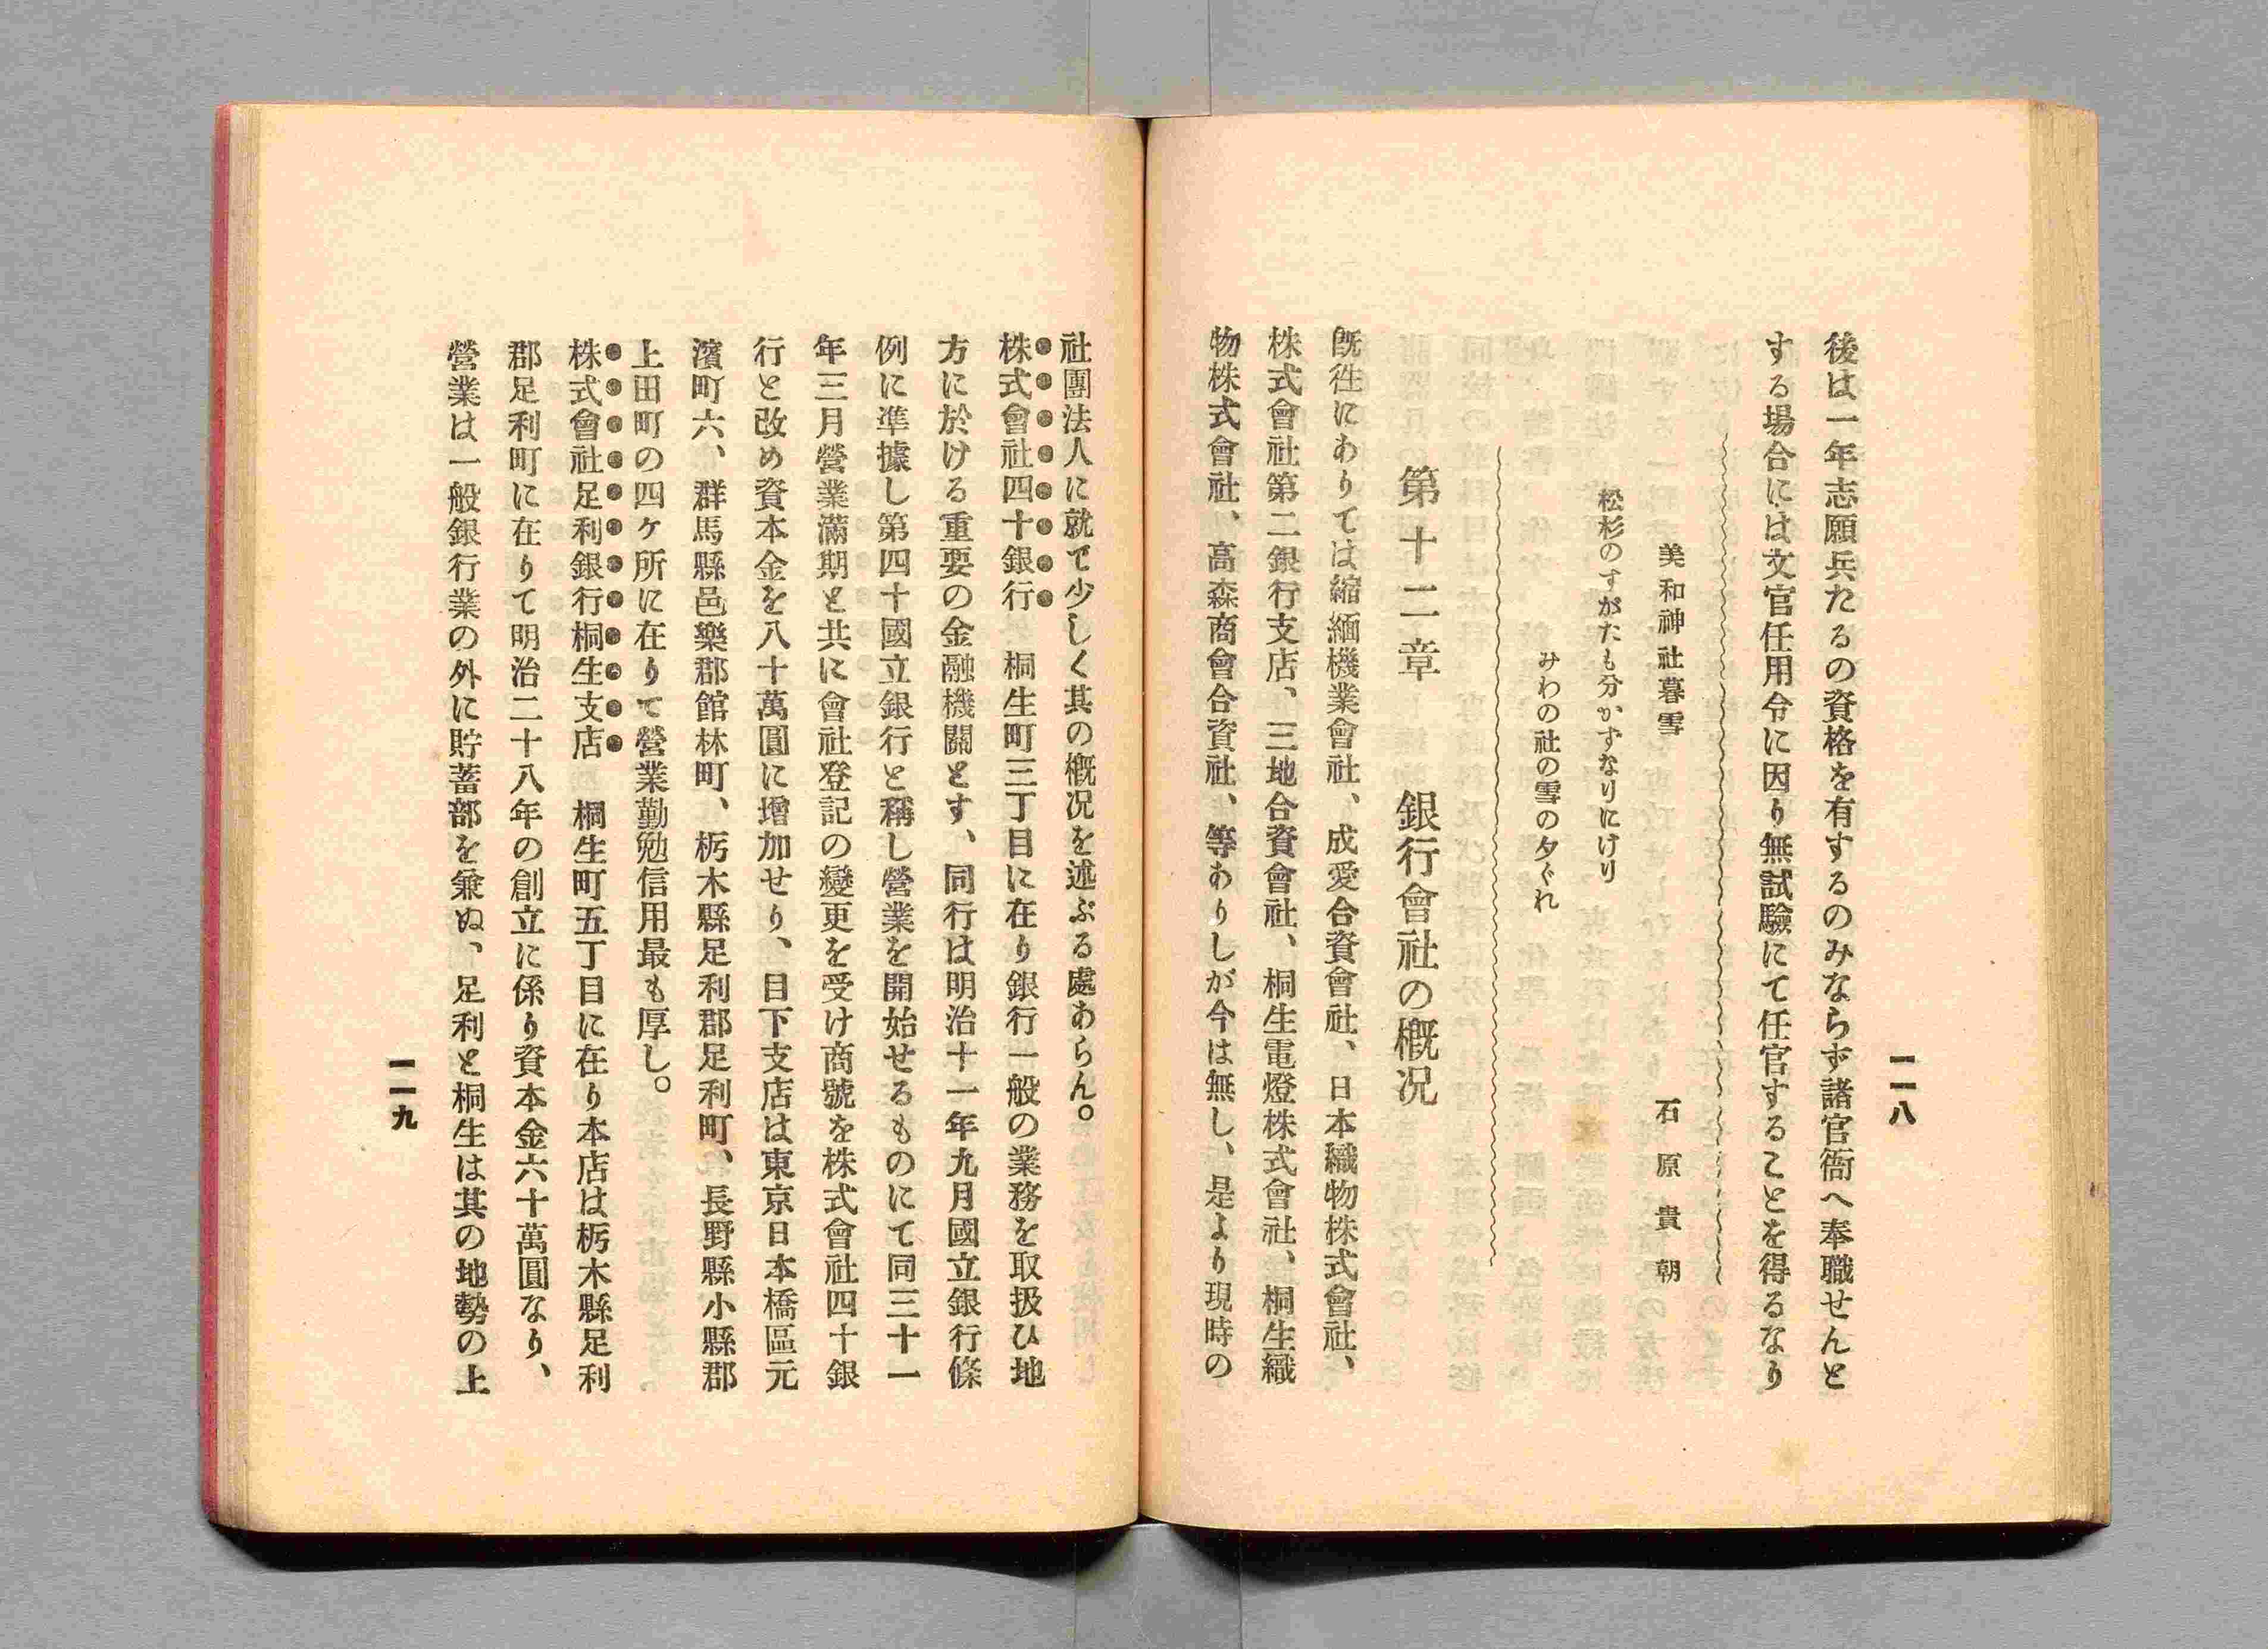 一一八
後は一年志願兵たるの資格を有するのみならず諸官衙へ奉職せんと
する場合には文官任用令に因り無試驗にて任官することを得るなり
美和神社暮雪　石原貴朝
松杉のすがたも分かずなりにけり
みわの社の雪の夕ぐれ
第十二章　銀行會社の概况
既徃にありては縮緬機業會社、成愛合資會社、日本織物株式會社、
株式會社第二銀行支店、三地合資會社、桐生電燈株式會社、桐生織
物株式會社、高森商會合資社、等ありしが今は無し、是より現時の
社團法人に就て少しく其の概况を述ぶる處あらん。
株式會社四十銀行　桐生町三丁目に在り銀行一般の業務を取扱ひ地
方に於ける重要の金融機關とす、同行は明治十一年九月國立銀行條
例に準據し第四十國立銀行と稱し營業を開始せるものにて同三十一
年三月營業滿期と共に會社登記の變更を受け商號を株式會社四十銀
行と改め資本金を八十萬圓に增加せり、目下支店は東京日本橋區元
濱町六、群馬縣邑樂郡館林町、栃木縣足利郡足利町、長野縣小縣郡
上田町の四ケ所に在りて營業勤勉信用最も厚し。
株式會社足利銀行桐生支店　桐生町五丁目に在り本店は栃木縣足利
郡足利町に在りて明治二十八年の創立に係り資本金六十萬圓なり、
營業は一般銀行業の外に貯蓄部を兼ぬ、足利と桐生は其の地勢の上
一一九